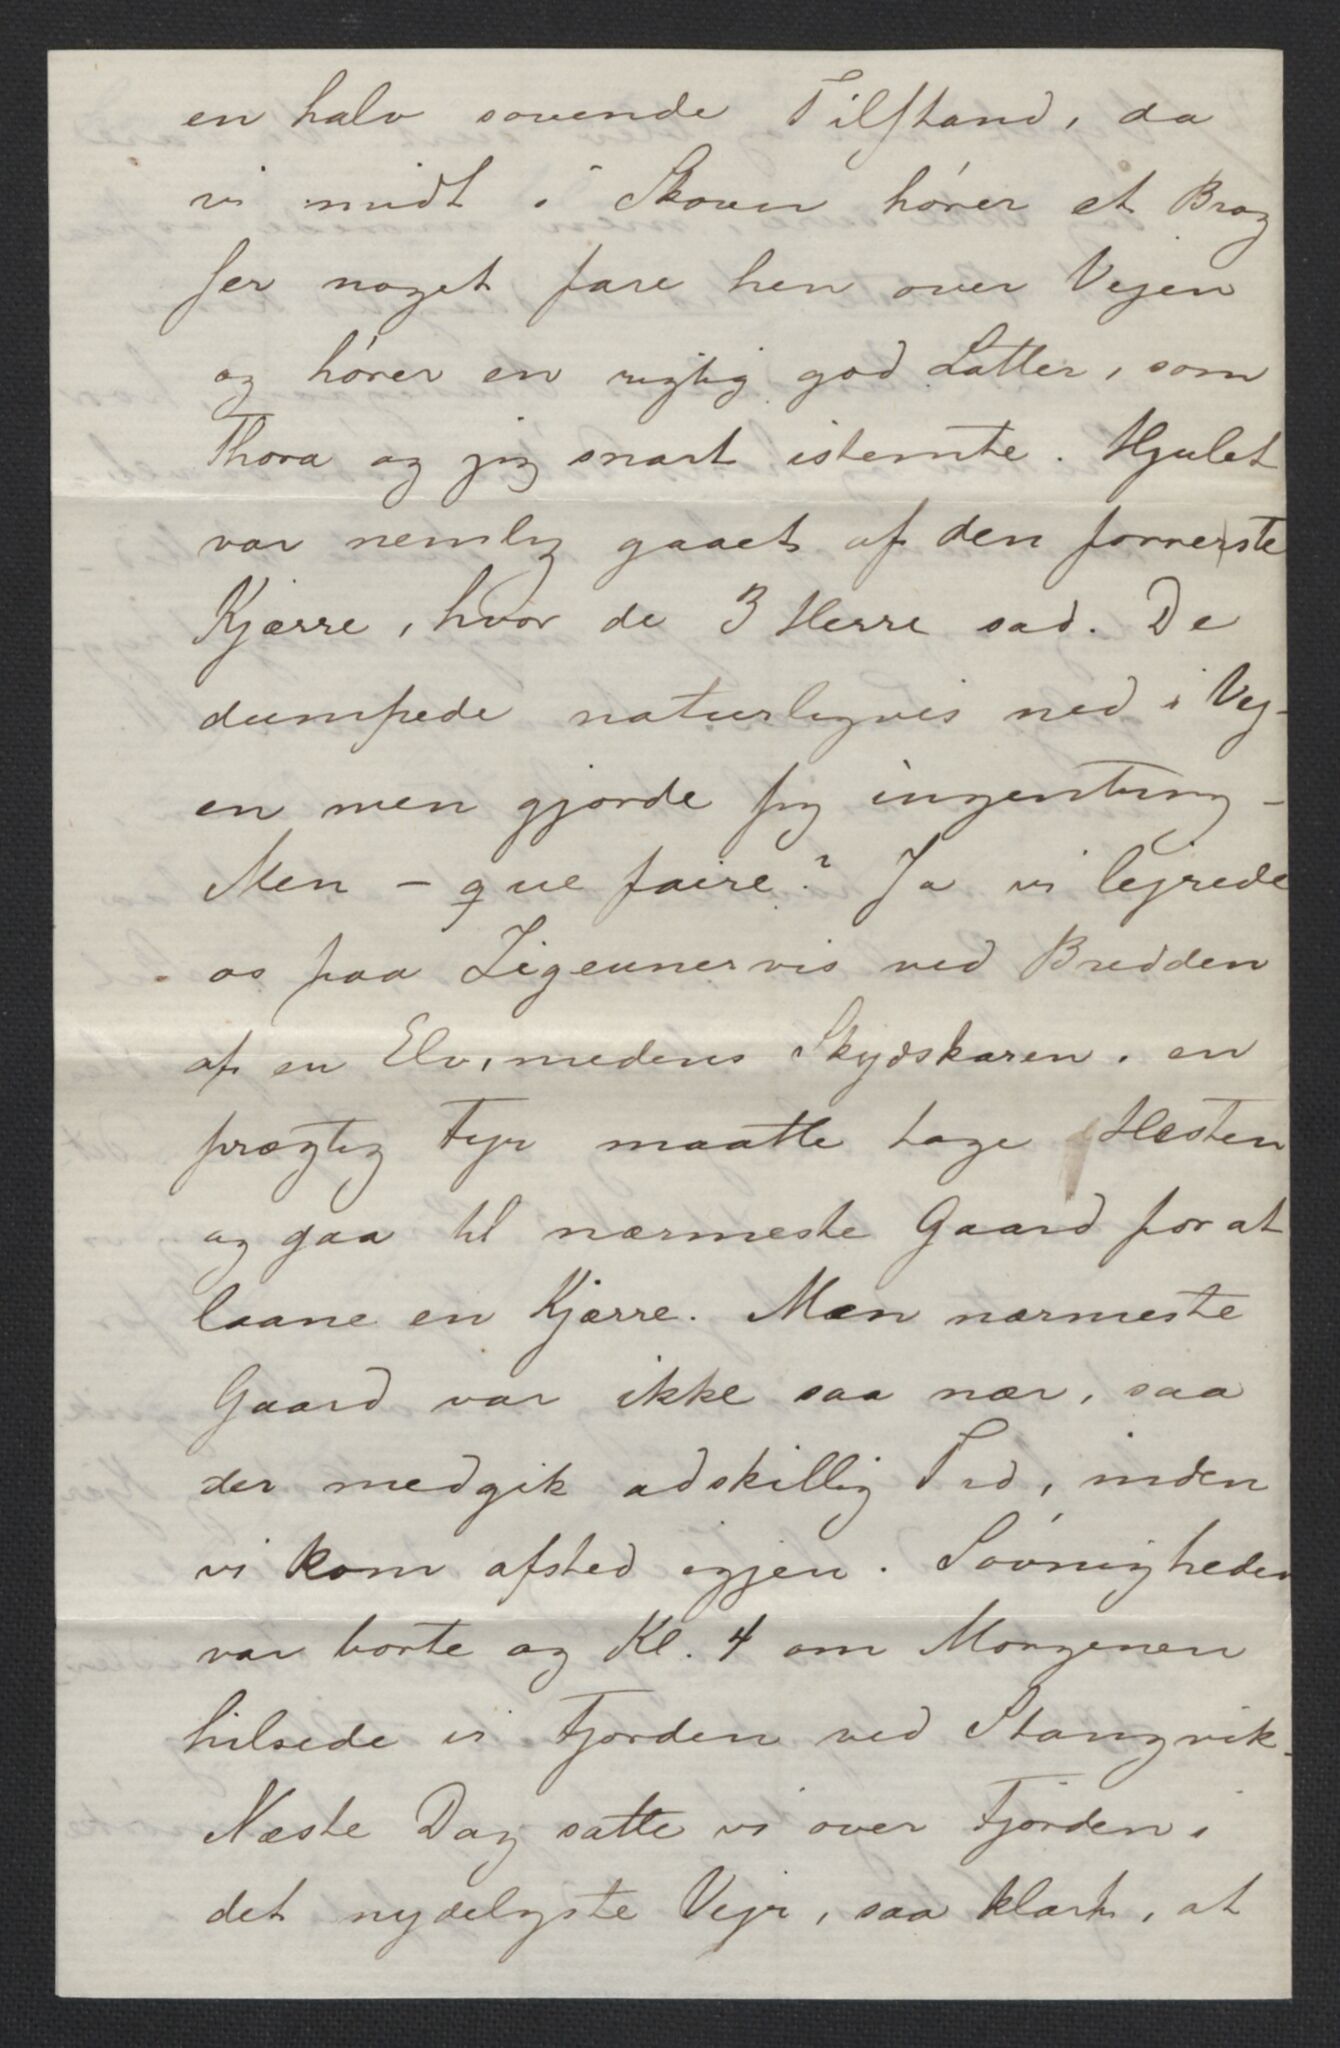 en halv sovende Tilstand, da
vi midt i Skoven hører et Brag
ser noget fare hen over Vejen
og hører en rigtig god Latter, som
Thora og jeg snart istemte. Hjulet
var nemlig gaaet af den forrerste
Kjærre, hvor de 3 Herre sad. De
dumpede naturligvis ned i Vej-
en men gjorde sig ingenting -
Men - que faire? Ja vi lejrede
os paa Zigeunervis ved Bredden
af en Elv, medens Skydskaren. en
prægtig Fyr maatte tage Hesten
og gaa til nærmeste Gaard for at
laane en Kjærre. Men nærmeste
Gaard var ikke saa nær, saa
der medgik adskillig Tid, inden
vi kom afsted igjen. Søvnigheden
var borte og Kl. 4 om Morgenen
hilsede vi Fjorden ved Stangvik-
Næste Dag satte vi over Fjorden i
det nydeligste Vejr, saa klart, at